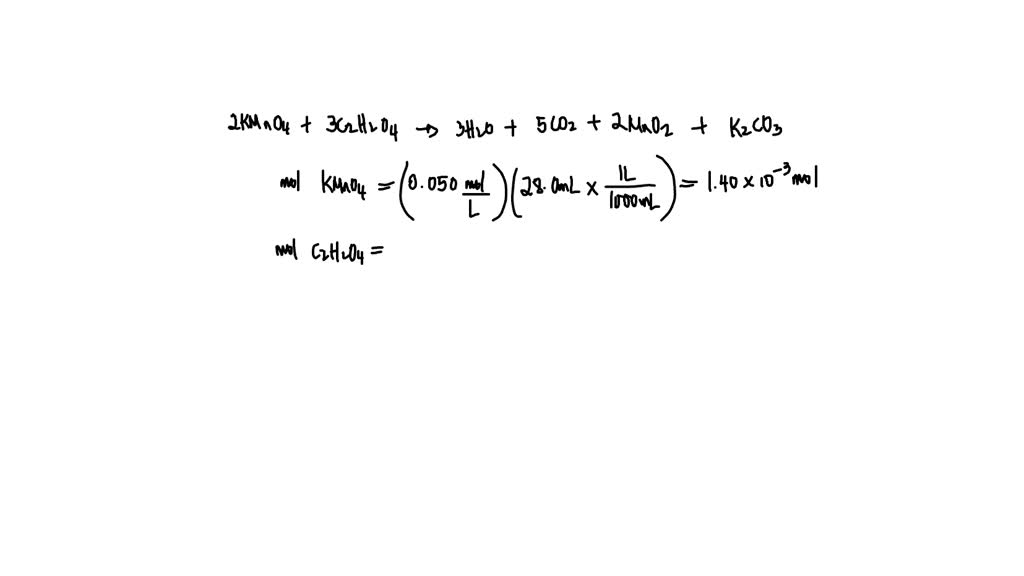 2KMnO4 + 3C2H2O4 → 3H2O + 5CO2 + 2MnO2 + K2CO3
mol KMnO4 = (0.050 mol/L)(28.0mL × 1L/1000mL) = 1.40 × 10⁻³ mol
mol C2H2O4 =